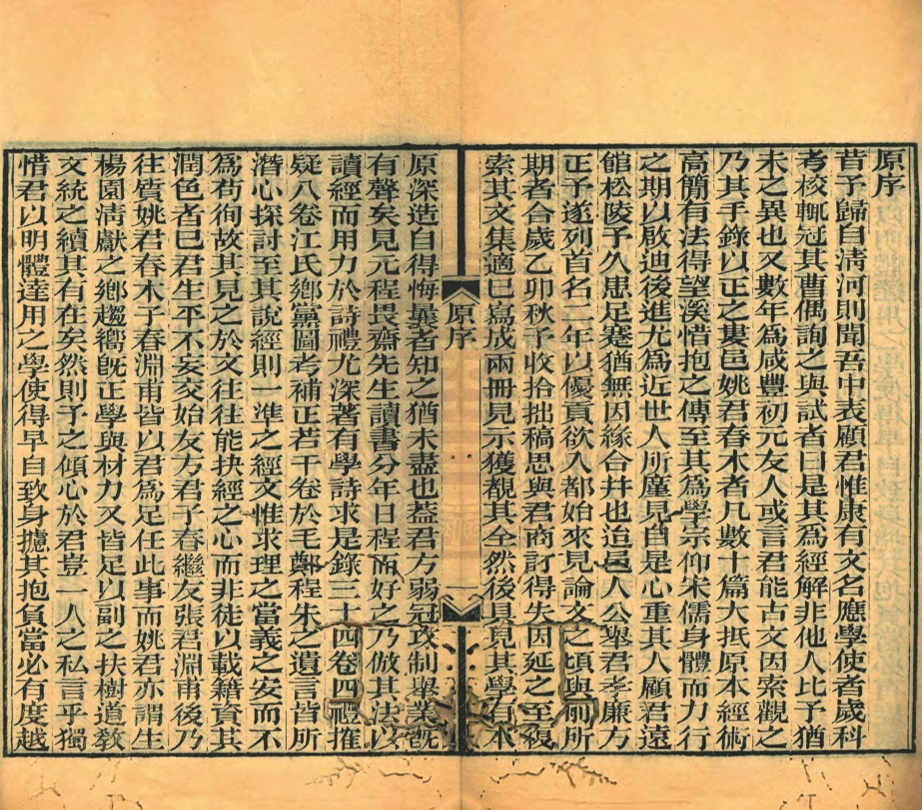 原序
昔予歸自淸河則聞吾中表顧君惟康有文名應學使者歲科
考核輒冠其曹偶詢之與試者曰是其爲經解非他人比予猶
未之異也又數年爲咸豐初元友人或言君能古文因索觀之
乃其手錄以正之婁邑姚君春木者凡數十篇大抵原本經術
高簡有法得望溪惜抱之傳至其爲學宗仰宋儒身體而力行
之期以啟迪後進尤爲近世人所廑見自是心重其人顧君遠
館松陵予久患足蹇猶無因緣合幷也迨邑人公舉君孝廉方
正予遂列首名二年以優貢欲入都始來見論文之頃與前所
期者合歲乙卯秋予收拾拙稿思與君商訂得失因延之至複
索其文集適巳寫成兩冊見示獲覩其全然後具見其學有本
原序
原深造自得悔曩者知之猶未盡也蓋君方弱冠攻制舉業旣
有聲矣見元程畏齋先生讀書分年日程而好之乃倣其法以
讀經而用力於詩禮尤深著有學詩求是錄三十四卷四禮搉
疑八卷江氏鄕黨圖考補正若干卷於毛鄭程朱之遺言皆所
潛心探討至其說經則一準之經文惟求理之當義之安而不
爲苟徇故其見之於文往往能抉經之心而非徒以載籍資其
潤色者巳君生平不妄交始友方君子春繼友張君淵甫後乃
往質姚君春木子春淵甫皆以君爲足任此事而姚君亦謂生
楊園淸獻之鄕趨嚮旣正學與材力又皆足以副之扶樹道敎
文統之續其有在矣然則予之傾心於君豈一人之私言乎獨
惜君以明體達用之學使得早自致身攄其抱負當必有度越